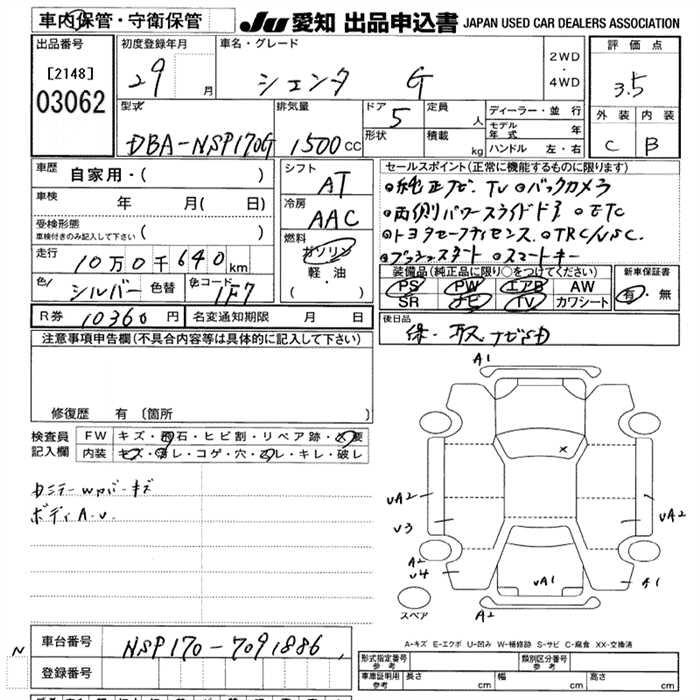 車内保管・守衛保管
JU 愛知 出品申込書 JAPAN USED CAR DEALERS ASSOCIATION
出品番号
[2148]
03062
初度登録年月
29 月
車名・グレード
シエンタ G
2WD
・
4WD
評価点
3.5
外装 内装
C B
型式
DBA-NSP170G
排気量
1500 CC
ドア
5
形状
定員
人
積載
kg
ディーラー・並行
モデル
年式 年
ハンドル 左・右
車歴
自家用・( )
車検
年 月( 日)
受検形態
車検付きのみ記入して下さい ( )
走行
10万0千640km
色
シルバー
色替
色コード
1F7
シフト
AT
冷房
AAC
燃料
ガソリン
・
軽・油
( )
セールスポイント(正常に機能するものに限ります)
○純正ナビ、TV ○バックカメラ
○両側パワースライドドア ○ETC
○トヨタセーフティセンス、○TRC/VSC、
○プッシュスタート ○スマートキー
装備品(純正品に限り○をつけてください)
PS PW エアB AW
SR ナビ TV カワシート
新車保証書
有・無
R券 10360 円
名変通知期限 月 日
後日品
保・取 ナビSD
注意事項申告欄(不具合内容等は具体的に記入して下さい)
修復歴 有 (箇所 )
検査員
記入欄
FW キズ・飛石・ヒビ割・リペア跡・×要
内装 キズ・汚レ・コゲ・穴・スレ・キレ・破レ
ボディA.U.
A1
×
UA2
U3
A2
U4
UA2
A1
UA1
A2
スペア
A-キズ E-エクボ U-凹み W-補修跡 S-サビ C-腐食 XX-交換済
N
車台番号
NSP170-7091886
登録番号
形式指定番号
参考
類別区分番号
参考
車庫証明用
参考
長さ cm 幅 cm 高さ cm